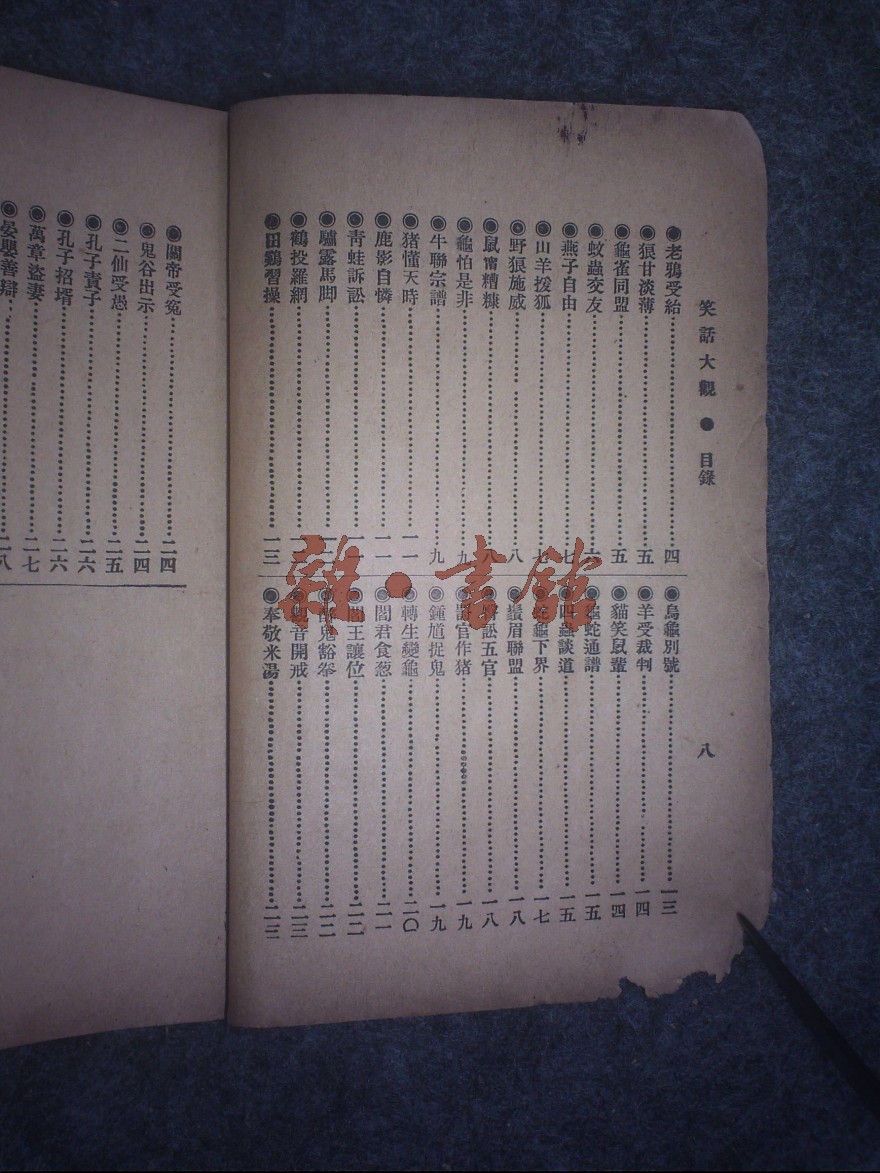 笑話大觀 ● 目錄
八
◉老鴉受給……四
◉狼甘淡薄……五
◉龜雀同盟……五
◉蚊蟲交友……六
◉燕子自由……七
◉山羊援狐……七
◉野狼施威……八
◉鼠甯糟糠……八
◉龜怕是非……九
◉牛聯宗譜……九
◉猪懂天時……一一
◉鹿影自憐……一一
◉青蛙訴訟……一一
◉驢露馬脚……一二
◉鶴投羅網……一
◉田鷄習操……一三
◉烏龜別號……一三
◉羊受裁判……一四
◉貓笑鼠輩……一四
◉蛇通譜……一五
◉蟲談道……一五
◉龜下界……一七
◉鬚眉聯盟……一八
◉訟五官……一八
◉官作猪……一九
◉鍾馗捉鬼……一九
◉轉生變龜……二〇
◉閻君食葱……二一
◉閻王讓位……二二
◉鬼豁拳……二二
◉觀音開戒……二三
◉奉敬米湯……二三
雜·書館
◉關帝受冤……二四
◉鬼谷出示……二四
◉二仙受愚……二五
◉孔子責子……二六
◉孔子招壻……二六
◉萬章盜妻……二七
◉晏嬰善辯……二八